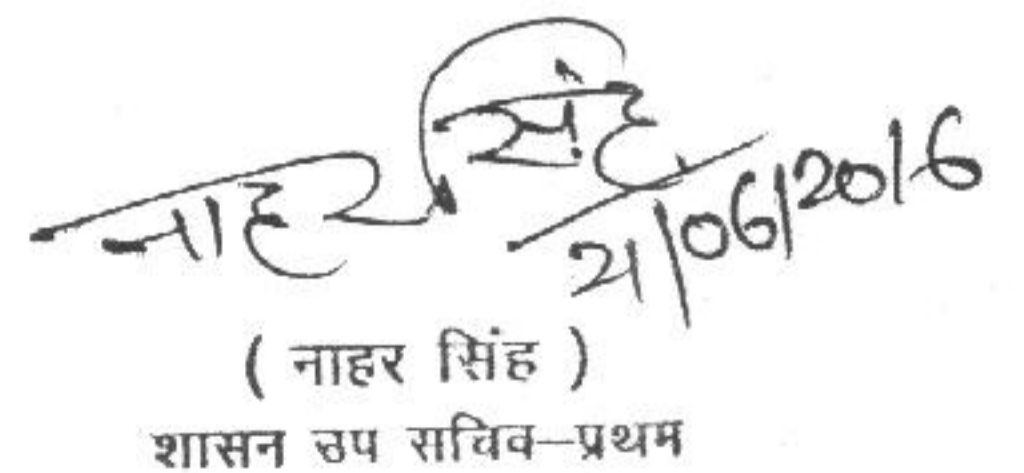 नाहर सिंह
21/06/2016
( नाहर सिंह )
शासन उप सचिव–प्रथम